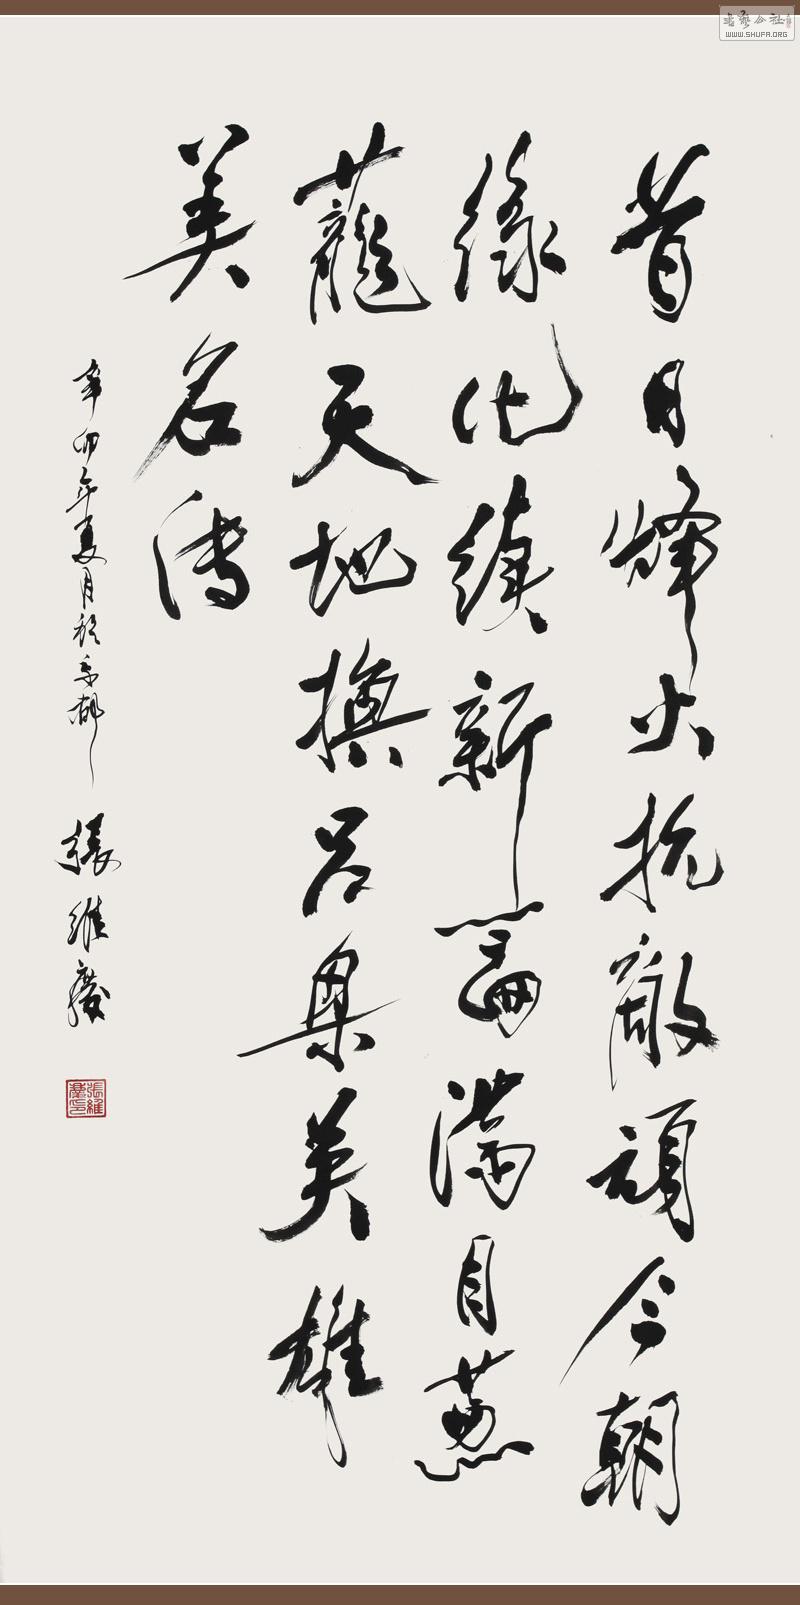 昔日烽火抗敵頑今朝
綠化續新篇滿目蔥
蘢天地換呂梁英雄
美名傳
辛卯年夏月於京都
張維慶
張維慶印
書藝公社
WWW.SHUFA.ORG